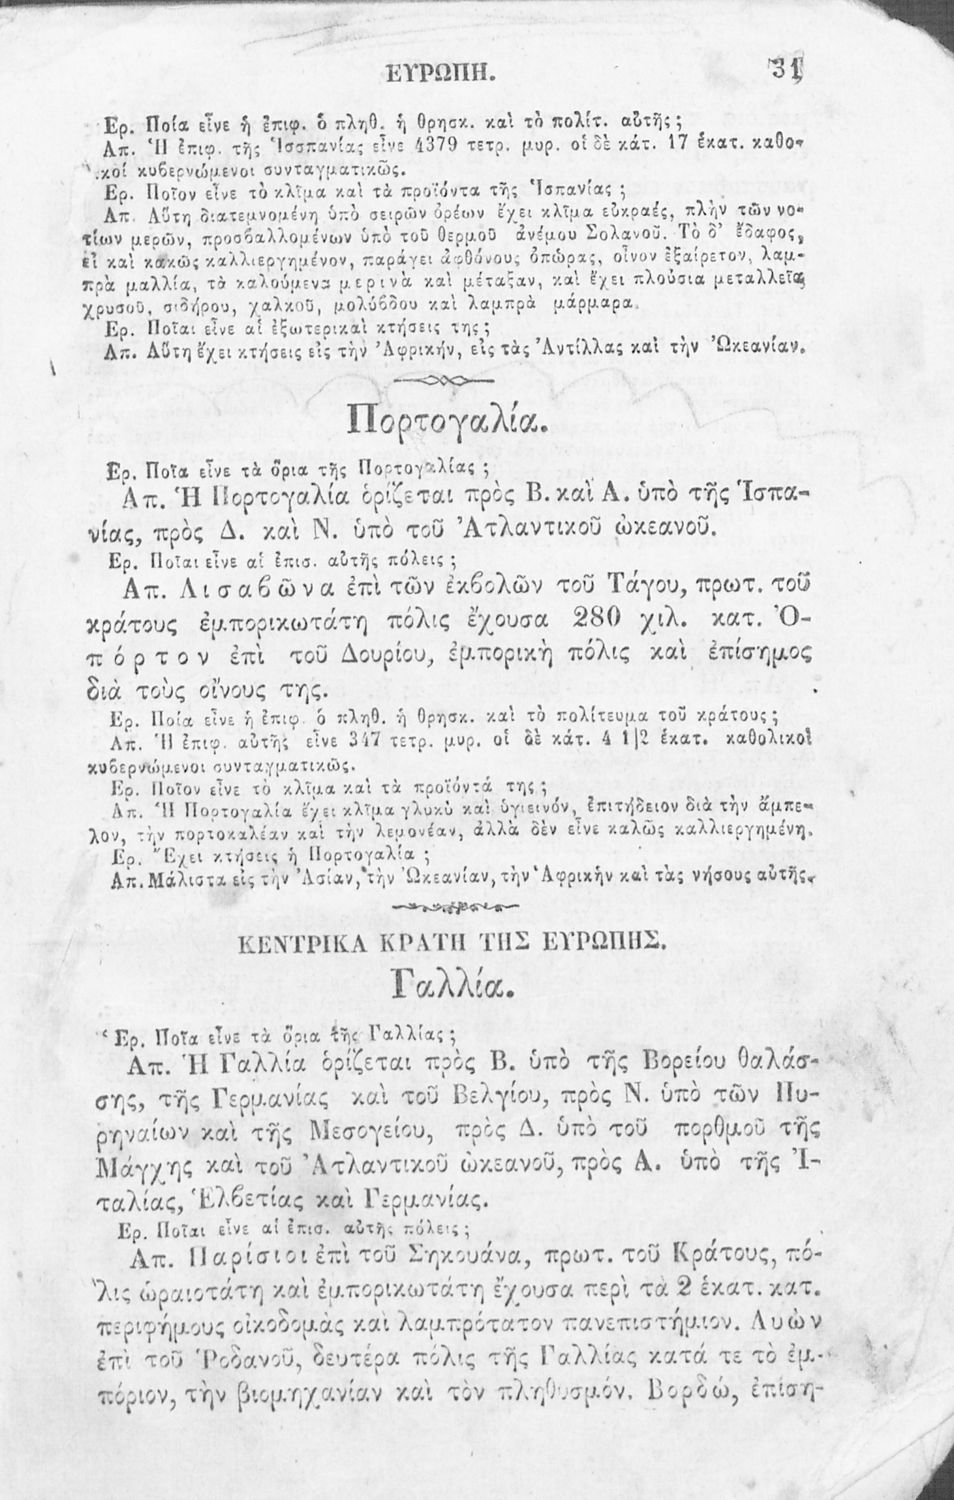 ΕΥΡΩΠΗ. 31
Ερ. Ποία εἶνε ἡ ἐπιφ. ὁ πληθ. ἡ θρησκ. καὶ τὸ πολίτ. αὐτῆς ;
Απ. Ἡ ἐπιφ. τῆς Ἱσσπανίας εἶνε 4379 τετρ. μυρ. οἱ δὲ κάτ. 17 ἑκατ. καθο-
λικοί κυβερνώμενοι συνταγματικῶς.
Ερ. Ποῖον εἶνε τὸ κλῖμα καὶ τὰ προϊόντα τῆς Ἱσπανίας ;
Απ. Αὕτη διατεμνομένη ὑπὸ σειρῶν ὀρέων ἔχει κλῖμα εὐκραές, πλὴν τῶν νο-
τίων μερῶν, προσβαλλομένων ὑπὸ τοῦ θερμοῦ ἀνέμου Σολανοῦ. Τὸ δ' ἔδαφος,
εἰ καὶ κακῶς καλλιεργημένον, παράγει ἀφθόνους ὀπώρας, οἶνον ἐξαίρετον, λαμ-
πρὰ μαλλία, τὰ καλούμενα μερινὰ καὶ μέταξαν, καὶ ἔχει πλούσια μεταλλεῖα
χρυσοῦ, σιδήρου, χαλκοῦ, μολύβδου καὶ λαμπρὰ μάρμαρα.
Ερ. Ποῖαι εἶνε αἱ ἐξωτερικαὶ κτήσεις της ;
Απ. Αὕτη ἔχει κτήσεις εἰς τὴν Ἀφρικήν, εἰς τὰς Ἀντίλλας καὶ τὴν Ὠκεανίαν.
Πορτογαλία.
Ερ. Ποῖα εἶνε τὰ ὅρια τῆς Πορτογαλίας ;
Απ. Ἡ Πορτογαλία ὁρίζεται πρὸς Β. καὶ Α. ὑπὸ τῆς Ἱσπα-
νίας, πρὸς Δ. καὶ Ν. ὑπὸ τοῦ Ἀτλαντικοῦ ὠκεανοῦ.
Ερ. Ποῖαι εἶνε αἱ ἐπισ. αὐτῆς πόλεις ;
Απ. Λισαβῶνα ἐπὶ τῶν ἐκβολῶν τοῦ Τάγου, πρωτ. τοῦ
κράτους ἐμπορικωτάτη πόλις ἔχουσα 280 χιλ. κατ. Ὀ-
πόρτον ἐπὶ τοῦ Δουρίου, ἐμπορικὴ πόλις καὶ ἐπίσημος
διὰ τοὺς οἴνους της.
Ερ. Ποία εἶνε ἡ ἐπιφ. ὁ πληθ. ἡ θρησκ. καὶ τὸ πολίτευμα τοῦ κράτους ;
Απ. Ἡ ἐπιφ. αὐτῆς εἶνε 347 τετρ. μυρ. οἱ δὲ κάτ. 4 1|2 ἑκατ. καθολικοὶ
κυβερνώμενοι συνταγματικῶς.
Ερ. Ποῖον εἶνε τὸ κλῖμα καὶ τὰ προϊόντά της ;
Απ. Ἡ Πορτογαλία ἔχει κλῖμα γλυκὺ καὶ ὑγιεινόν, ἐπιτήδειον διὰ τὴν ἄμπε-
λον, τὴν πορτοκαλέαν καὶ τὴν λεμονέαν, ἀλλὰ δὲν εἶνε καλῶς καλλιεργημένη.
Ερ. Ἔχει κτήσεις ἡ Πορτογαλία ;
Απ. Μάλιστα εἰς τὴν Ἀσίαν, τὴν Ὠκεανίαν, τὴν Ἀφρικὴν καὶ τὰς νήσους αὐτῆς.
ΚΕΝΤΡΙΚΑ ΚΡΑΤΗ ΤΗΣ ΕΥΡΩΠΗΣ.
Γαλλία.
Ερ. Ποῖα εἶνε τὰ ὅρια τῆς Γαλλίας ;
Απ. Ἡ Γαλλία ὁρίζεται πρὸς Β. ὑπὸ τῆς Βορείου θαλάσ-
σης, τῆς Γερμανίας καὶ τοῦ Βελγίου, πρὸς Ν. ὑπὸ τῶν Πυ-
ρηναίων καὶ τῆς Μεσογείου, πρὸς Δ. ὑπὸ τοῦ πορθμοῦ τῆς
Μάγχης καὶ τοῦ Ἀτλαντικοῦ ὠκεανοῦ, πρὸς Α. ὑπὸ τῆς Ἰ-
ταλίας, Ἑλβετίας καὶ Γερμανίας.
Ερ. Ποῖαι εἶνε αἱ ἐπισ. αὐτῆς πόλεις ;
Απ. Παρίσιοι ἐπὶ τοῦ Σηκουάνα, πρωτ. τοῦ Κράτους, πό-
λις ὡραιοτάτη καὶ ἐμπορικωτάτη ἔχουσα περὶ τὰ 2 ἑκατ. κατ.
περιφήμους οἰκοδομὰς καὶ λαμπρότατον πανεπιστήμιον. Λυὼν
ἐπὶ τοῦ Ῥοδανοῦ, δευτέρα πόλις τῆς Γαλλίας κατά τε τὸ ἐμ-
πόριον, τὴν βιομηχανίαν καὶ τὸν πληθυσμόν. Βορδώ, ἐπίση-